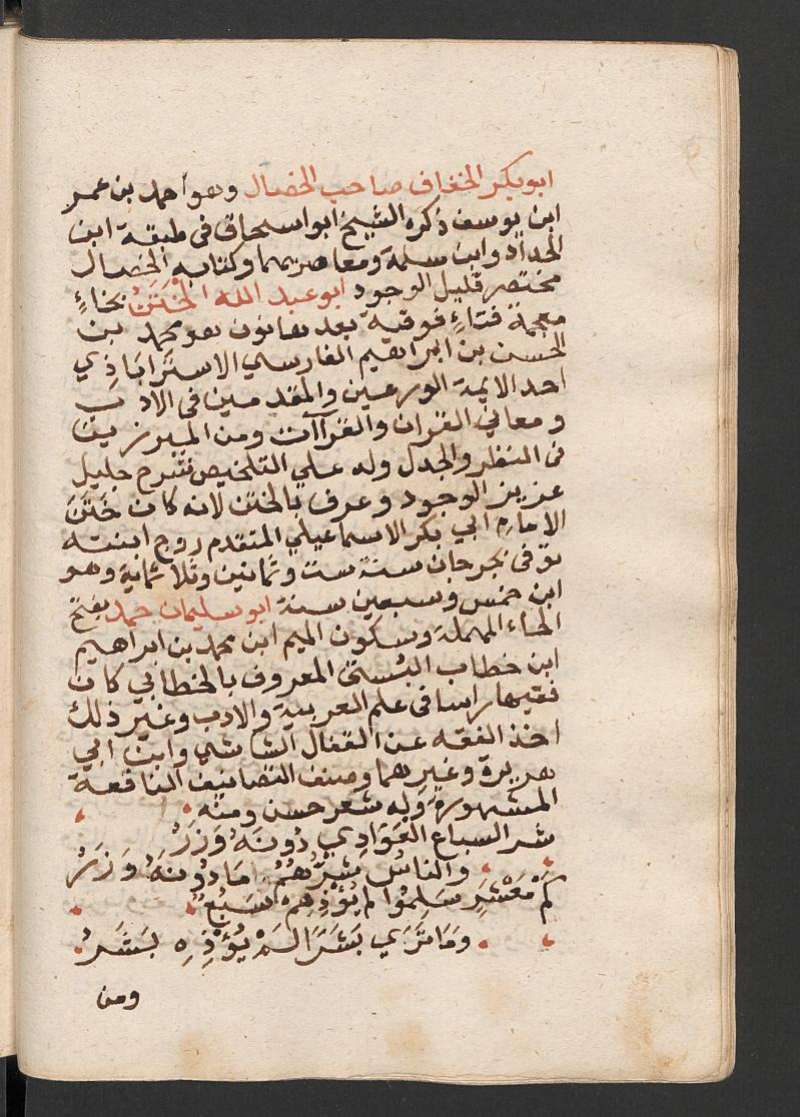 ابو بكر الخفاف صاحب الخصال وهو احمد بن عمر
ابن يوسف ذكره الشيخ ابو اسحاق في طبقة ابن
الحداد وابن سلمة ومعاصريهما وكتابه الخصال
مختصر قليل الوجود ابو عبد الله الخَتَنُ بخاءٍ
معجمة فتاءٍ فوقية بعدها نون هو محمد بن
الحسن بن ابراهيم الفارسي الاسترَاباذي
احد الايمة الورعين والمقدمين في الادب
ومعاني القران والقراآت ومن المبرزين
في النظر والجدل وله علي التلخيص شرح جليل
عزيز الوجود وعرف بالختن لانه كان خَتَنَ
الامام ابي بكر الاسماعيلي المتقدم زوج ابنته
توفى بجرجان سنة ست وثمانين وثلاثماية وهو
ابن خمس وسبعين سنة ابو سليمان حمد بفتح
الحاء المهملة وسكون الميم ابن محمد بن ابراهيم
ابن خطاب البُستي المعروف بالخطابي كان
فقيها راسا في علم العربية والادب وغير ذلك
اخذ الفقه عن القفال الشاشي وابن ابي
هريرة وغيرهما وصنف التصانيف النافعة
المشهورة وله شعر حسن ومنه
شر السباع العَوَادِي دُونَهُ وَزَرُ
والناسُ شرُّهُمُ مَا دُونَهُ وَزَرُ
كَمْ مَعْشَرٍ سَلِمُوا لم يُؤْذِهِمْ سَبُعٌ
وَمَا تَرَي بَشَرًا لَمْ يُؤْذِهِ بَشَرُ
ومن